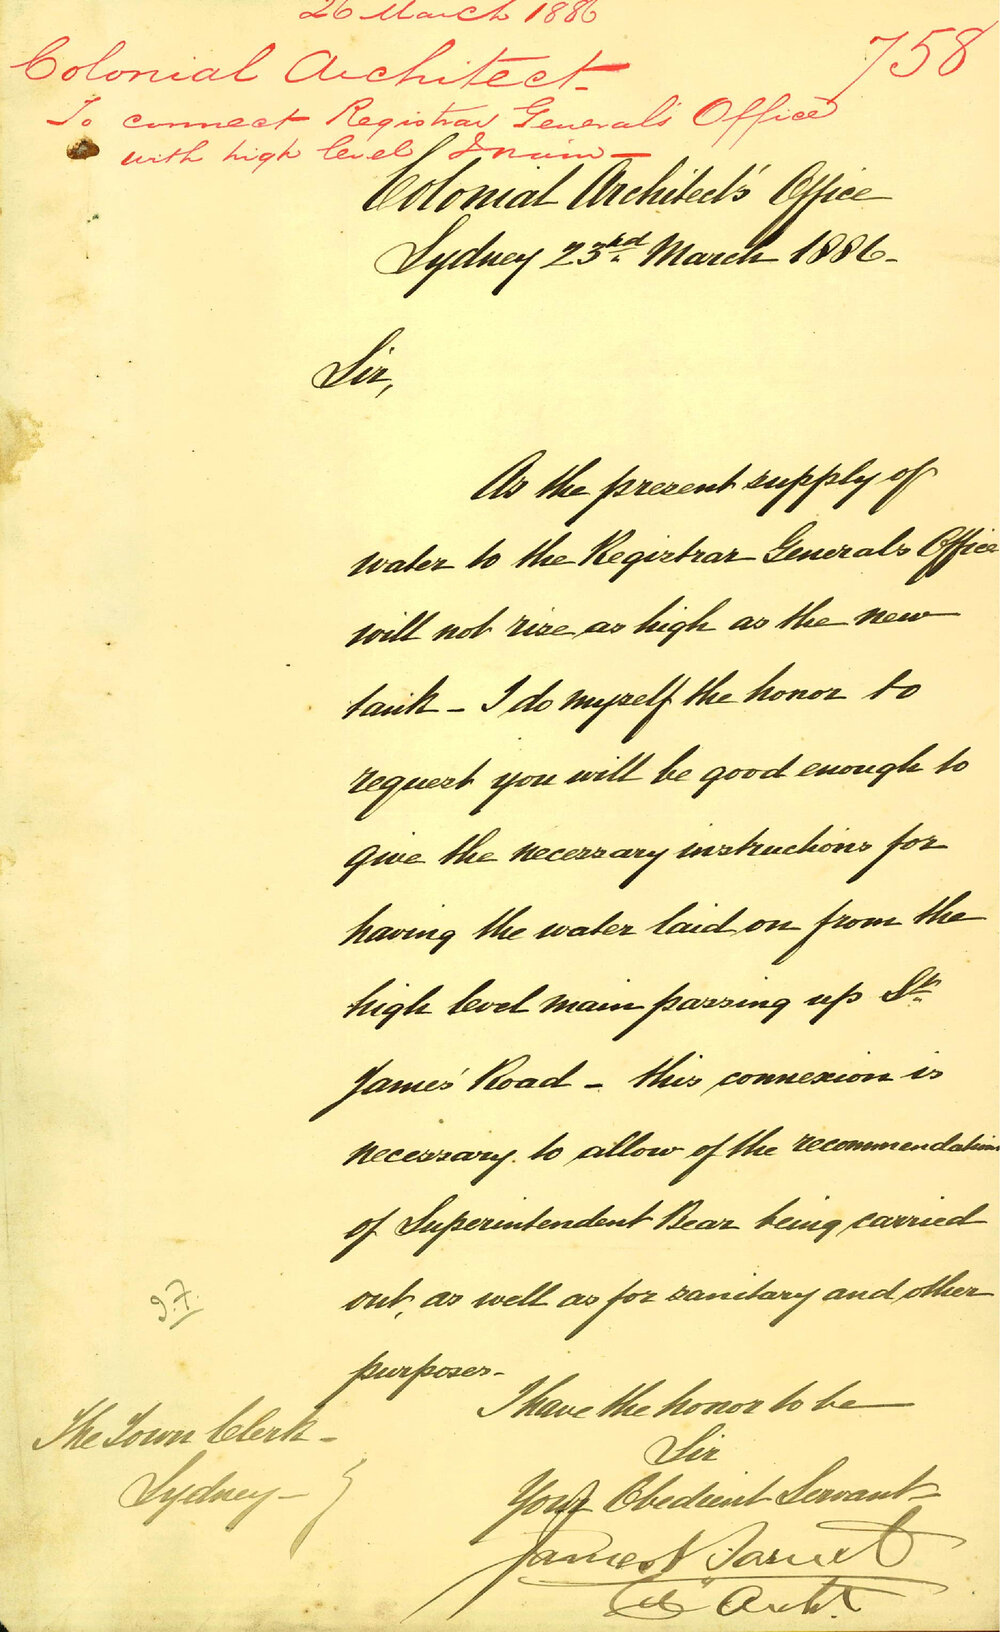 26 March 1886
758
Colonial Architect.
To connect Registrar General's Office
with high level Drain -
Colonial Architect's Office
Sydney 23rd March 1886.
Sir,
As the present supply of
water to the Registrar Generals Office
will not rise as high as the new
tank - I do myself the honor to
request you will be good enough to
give the necessary instructions for
having the water laid on from the
high level main passing up St.
James' Road - this connexion is
necessary to allow of the recommendation
of Superintendent Bear being carried
out, as well as for sanitary and other
purposes -
I have the honor to be
Sir
Your Obedient Servant
James Barnet
Col. Archt.
The Town Clerk -
Sydney -